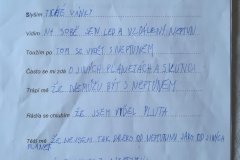 Slyším TICHÉ VÁNKY
Vidím NA SOBĚ SEM LED A VZDÁLENÝ NEPTUN
Toužím po TOM SE VIDĚT S NEPTUNEM
Často se mi zdá O JINÝCH PLANETÁCH A SLUNCI
Trápí mě ŽE NEMŮŽU BÝT S NEPTUNEM
Rád/a se chlubím ŽE JSEM VIDĚL PLUTA
Těší mě ŽE NEJSEM TAK DALEKO OD NEPTUNU JAKO OD JINÝCH
PLANET